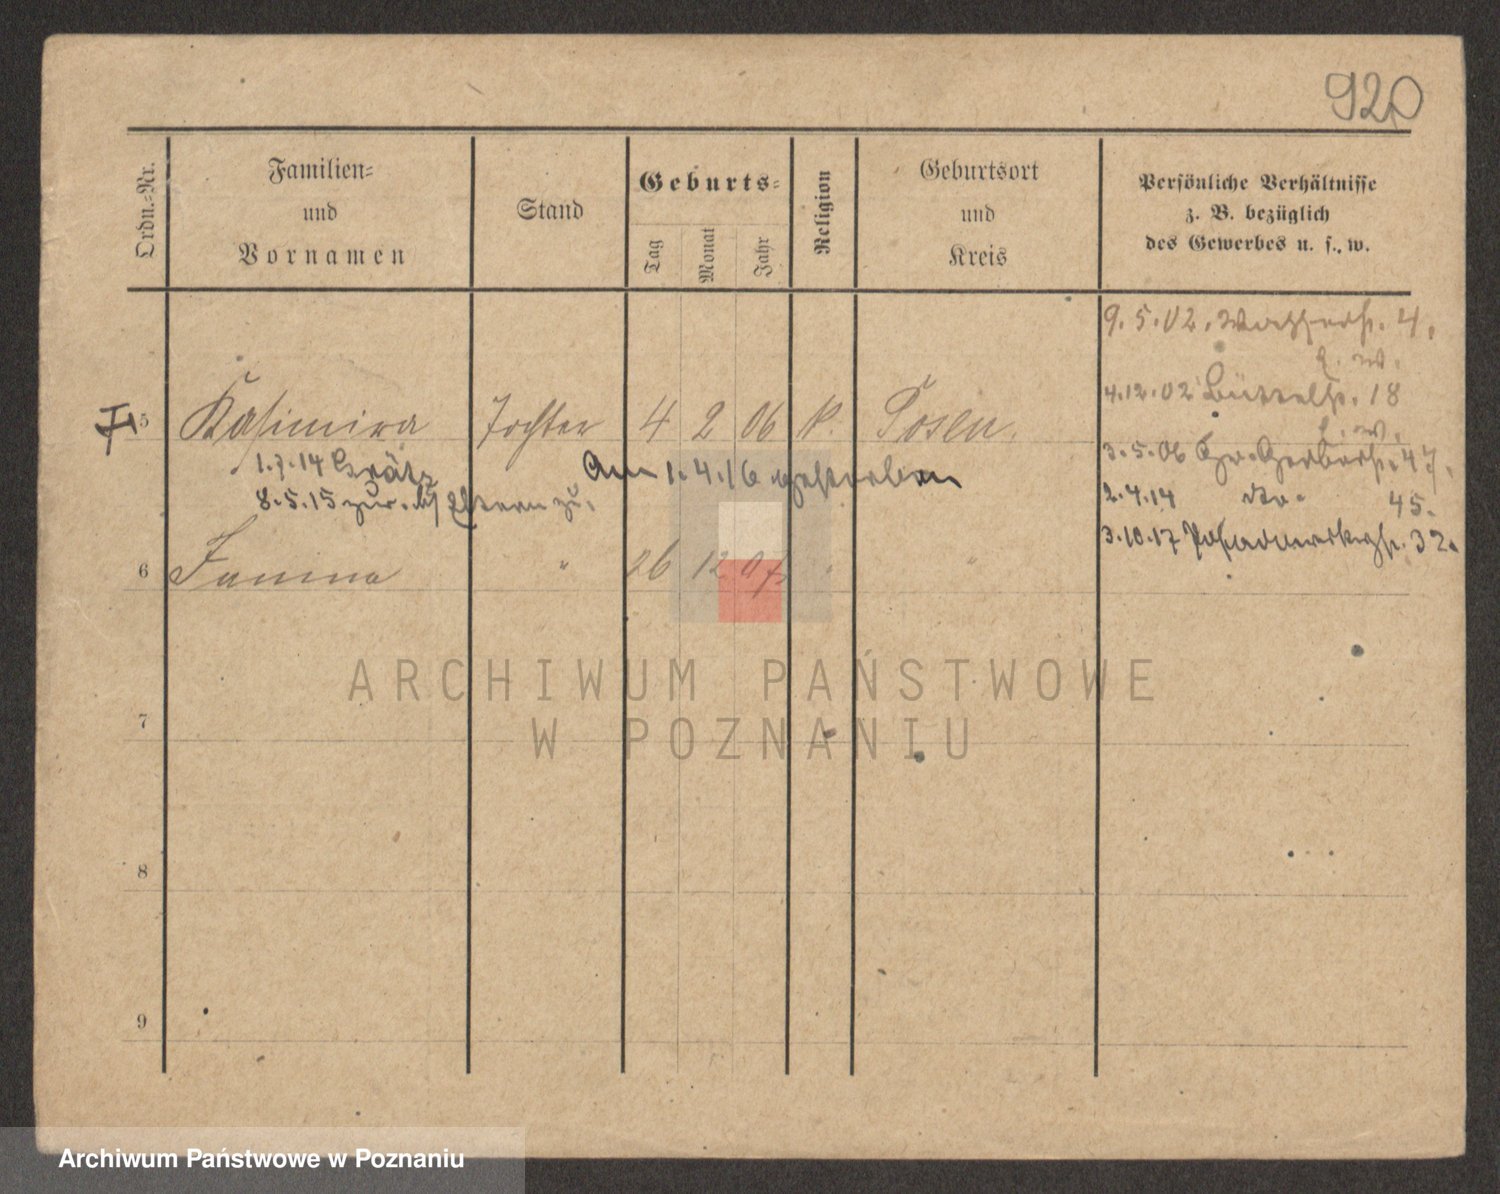 920
Ordn.-Nr.
Familien-
und
Vornamen
Stand
Geburts-
Tag
Monat
Jahr
Religion
Geburtsort
und
Kreis
Persönliche Verhältnisse
z. B. bezüglich
des Gewerbes u. s. w.
9.5.02. Wasserstr. 4.
h. w.
4.12.02 Büttelstr. 18
h. w.
3.5.06 Gr. Gerberstr. 47.
2.4.14 do. 45.
3.10.17 32.
5 Kasimira Tochter 4 2 06 k. Posen.
1.7.14 Grätz
Am 1.4.16 gestorben
8.5.15 zur. Eltern zu.
6 " 26 12 07 " "
7
8
9
ARCHIWUM PAŃSTWOWE
W POZNANIU
Archiwum Państwowe w Poznaniu